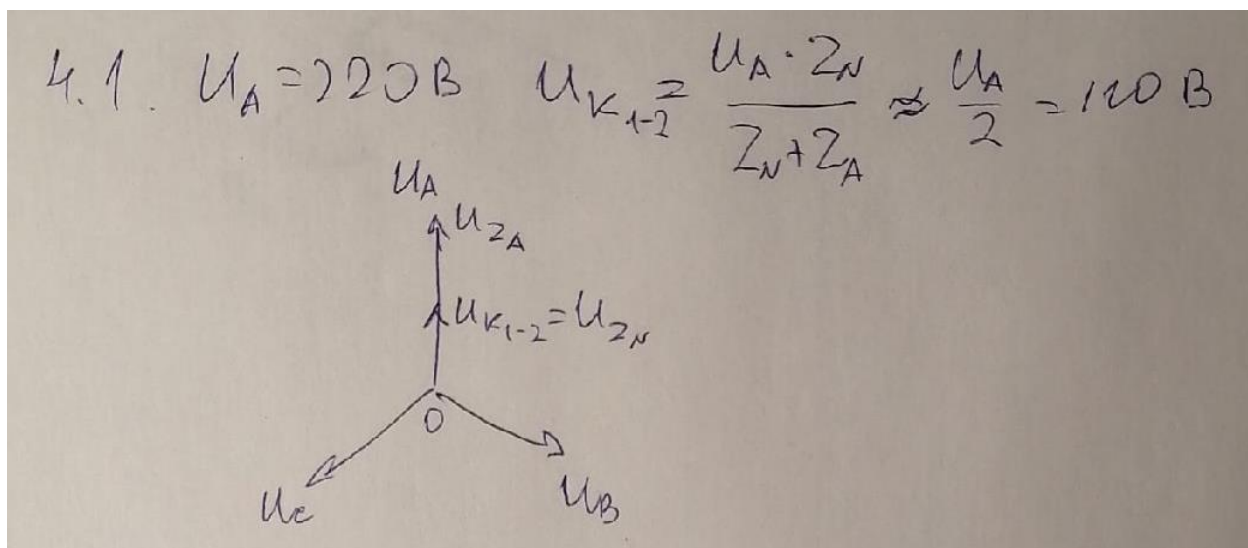 4.1. U_A = 220 В U_K1-2 = U_A · Z_N / Z_N + Z_A ≈ U_A / 2 = 110 В
U_A
U_ZA
U_K1-2 = U_ZN
0
U_C
U_B